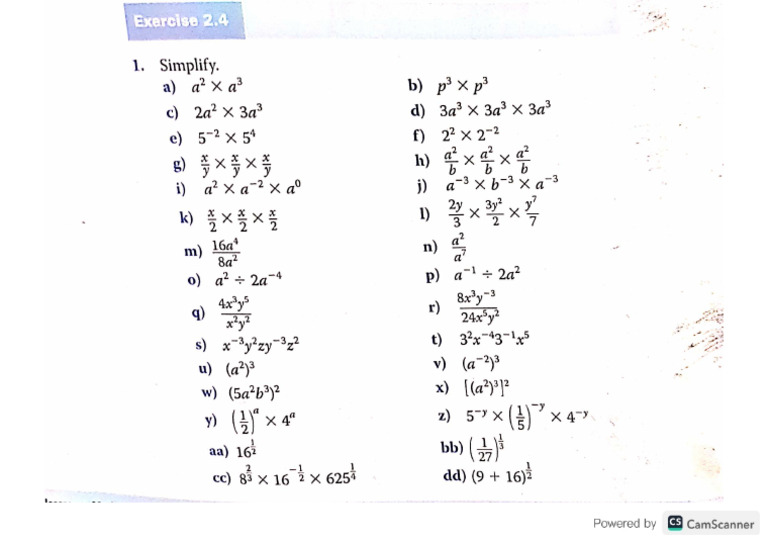 Exercise 2.4
1. Simplify.
a) a² × a³ b) p³ × p³
c) 2a² × 3a³ d) 3a³ × 3a³ × 3a³
e) 5⁻² × 5⁴ f) 2² × 2⁻²
g) x/y × x/y × x/y h) a²/b × a²/b × a²/b
i) a² × a⁻² × a⁰ j) a⁻³ × b⁻³ × a⁻³
k) x/2 × x/2 × x/2 l) 2y/3 × 3y²/2 × y⁷/7
m) 16a⁴/8a² n) a²/a⁷
o) a² ÷ 2a⁻⁴ p) a⁻¹ ÷ 2a²
q) 4x³y⁵/x²y² r) 8x³y⁻³/24x⁵y²
s) x⁻³y²zy⁻³z² t) 3²x⁻⁴3⁻¹x⁵
u) (a²)³ v) (a⁻²)³
w) (5a²b³)² x) [(a²)³]²
y) (1/2)ᵃ × 4ᵃ z) 5⁻ʸ × (1/5)⁻ʸ × 4⁻ʸ
aa) 16^(1/2) bb) (1/27)^(1/3)
cc) 8^(2/3) × 16^(-1/2) × 625^(1/4) dd) (9 + 16)^(1/2)
Powered by CS CamScanner